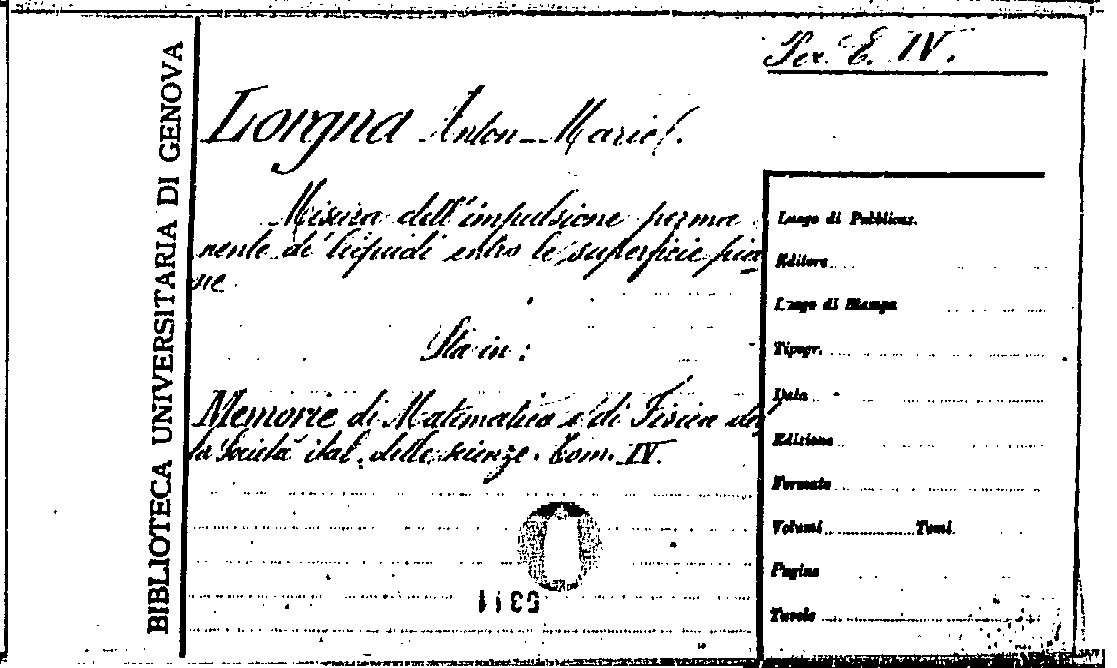 BIBLIOTECA UNIVERSITARIA DI GENOVA
Ser. E. IV.
Lorgna Anton-Maria.
Misura dell'impulsione perma
nente di liquidi entro le superficie pia
ne.
Sta in:
Memorie di Matematica e di Fisica del
la Società ital. delle scienze. Tom. IV.
Luogo di Pubblicaz.
Editore
Luogo di Stampa
Tipogr.
Data
Edizione
Formato
Volumi Tomi
Pagine
Tavole